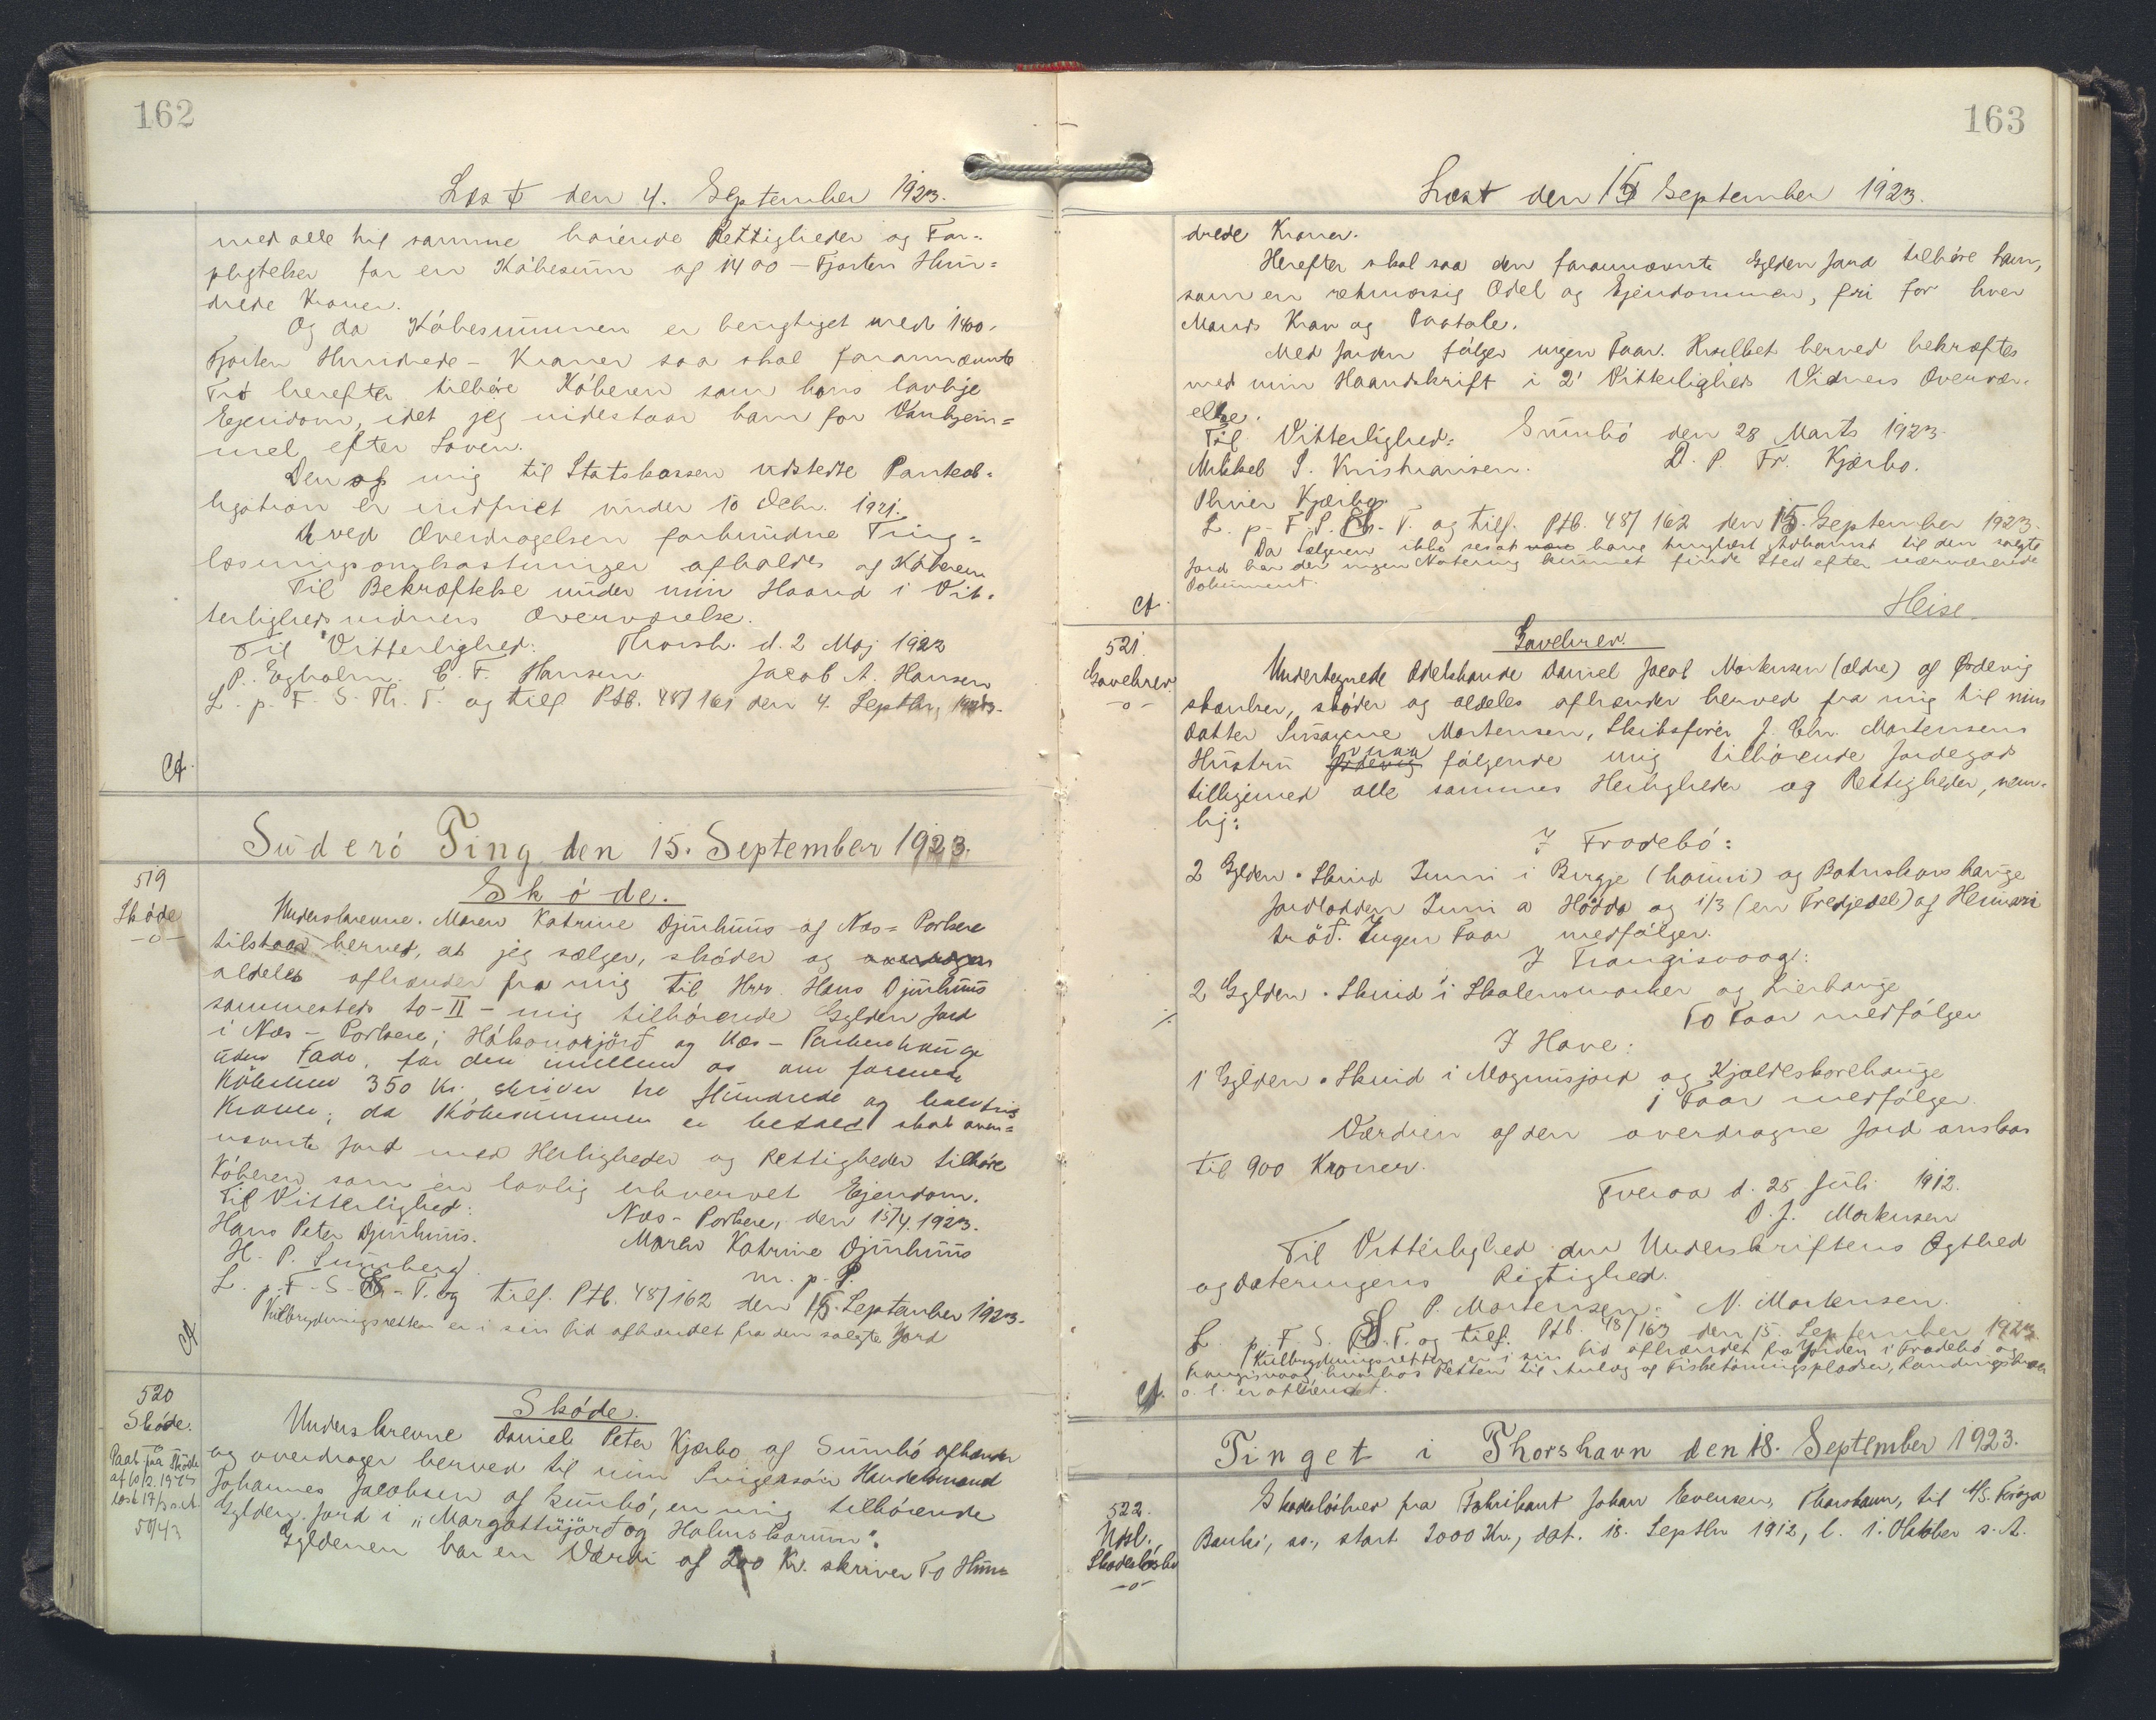 162
Læst den 4. September 1923.
med alle til samme hørende Rettigheder og For-
pligtelser for en Købesum af 1400 - Fjorten Hun=
drede Kroner.
Og da Købesummen er berigtiget med 1400.
Fjorten Hundrede - Kroner saa skal forannævnte
Trø herefter tilhøre Køberen som hans lovlige
Ejendom, idet jeg indestaar ham for Vanhjem=
mel efter Loven.
Den af mig til Statskassen udstedte Panteob=
ligation er indfriet under 10 Decbr. 1921.
De ved Overdragelsen forbundne Ting=
læsningsomkostninger afholdes af Køberen
Til Bekræftelse under min Haand i Vit=
terlighedsvidners Overværelse.
Til Vitterlighed: Thorsh. d. 2 Maj 1922
P. Egholm. C. F. Hansen Jacob A. Hansen
L. p. F. S. Th. T. og tilf. Ptb. 48/161 den 4. Septbr. 1923.
Suderø Ting den 15. September 1923.
519
Skøde
-o-
Skøde.
Underskrevne Maren Katrine Djurhuus af Næs = Porkere
tilstaar herved, at jeg sælger, skøder og
aldeles afhænder fra mig til Hrr. Hans Djurhuus
sammesteds to - II - mig tilhørende Gylden Jord
i Næs - Porkere; Hákonarjörð og Næs - Porkerehauge
uden Faar, for den imellem os om forenede
Købesum 350 Kr. skriver tre Hundrede og halvtreds
Kroner; da Købesummen er betalt skal oven=
nævnte Jord med Herligheder og Rettigheder tilhøre
Køberen som en lovlig erhvervet Ejendom.
Til Vitterlighed: Næs - Porkere, den 15/4 1923.
Hans Peter Djurhuus. Maren Katrine Djurhuus
H. P. Sumberg. m. p. P.
L. p. F. S. S. T. og tilf. Ptb. 48/162 den 15. September 1923.
Kulbrydningsretten er i sin Tid afhændet fra den solgte Jord
520
Skøde.
-o-
Paat. fra Skøde
Skøde.
Underskrevne Daniel Peter Kjærbo af Sumbø afhænder
og overdrager herved til min Svigersøn Handelsmand
Johannes Jacobsen af Sumbø, en mig tilhørende
Gylden Jord i "Margottujørð og Holmskorum".
Gyldenen har en Værdi af 200 Kr. skriver To Hun=
163
Læst den 15 September 1923.
drede Kroner.
Herefter skal saa den forannævnte Gylden Jord tilhøre ham,
som en retmæssig Odel og Ejendommen, fri for hver
Mands Krav og Paatale.
Med Jorden følger ingen Faar. Hvilket herved bekræftes
med min Haandskrift i 2 Vitterligheds Vidners Overvær=
else.
Til Vitterlighed: Sumbø den 28 Marts 1923.
Mikkel J. Kristiansen. D. P. Fr. Kjærbo.
Oliver Kjærbo
L. p. F. S. S. T. og tilf. Ptb. 48/162 den 15. September 1923.
Da Sælgeren ikke ses at have tinglæst Adkomst til den solgte
Jord har der ingen Notering kunnet finde Sted efter nærværende
Dokument.
Heise
521.
Gavebrev
-o-
Gavebrev.
Undertegnede Odelsbonde Daniel Jacob Mortensen (ældre) af Ørdevig
skænker, skøder og aldeles afhænder herved fra mig til min
Datter Susanne Mortensen, Skibsfører J. Chr. Mortensens
Hustru følgende mig tilhørende Jordegods
tilligemed alle sammes Herligheder og Rettigheder, nem=
lig:
I Frodebø:
2 Gylden Skind Inni i Byrgje (hauni) og Botnskorshauge
Jordlodden Inni a Hødda og 1/3 (en Tredjedel) af Heimari
trøð. Ingen Faar medfølger.
I Trangisvaag:
2 Gylden Skind i Skalensmarker og Lierhauge
To Faar medfølger
I Hove:
1 Gylden Skind i Magnusjord og Kjældeskorehauge
1 Faar medfølger.
Værdien af den overdragne Jord anslaas
til 900 Kroner.
Tveraa d. 25 Juli 1912.
D. J. Mortensen
Til Vitterlighed om Underskriftens Ægthed
og Dateringens Rigtighed.
P. Mortensen. N. Mortensen.
L. p. F. S. S. T. og tilf. Ptb. 48/163 den 15. September 1923
Kulbrydningsretten er i sin Tid afhændet fra Jorden i Frodebø og
Trangisvaag, hvorhos Retten til Anlæg af Fisketørringspladser, Landingsbroer
o. l. er afhændet.
Tinget i Thorshavn den 18. September 1923.
522.
Skadesløsbr
-o-
Skadesløsbrev fra Fabrikant Johan Evensen, Thorshavn, til A/S. Færøya
Banki, so., stort 2000 Kr., dat. 18. Septbr 1912, l. 1. Oktober s. A.